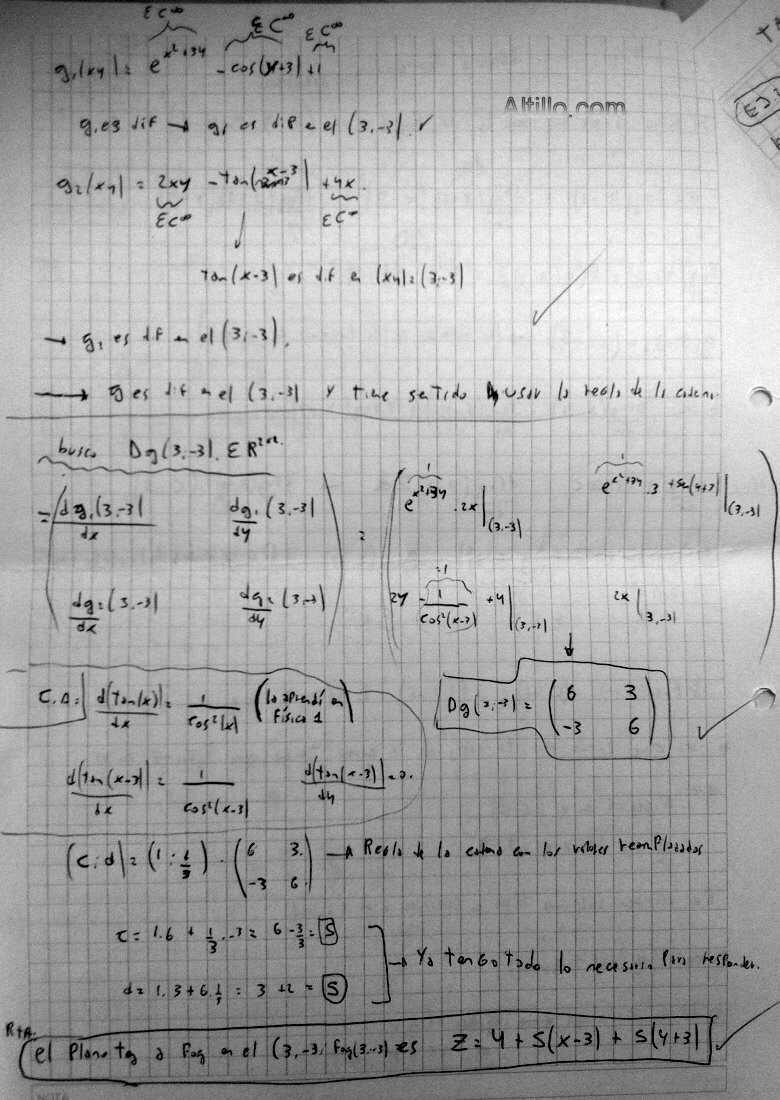 ∈C∞ ∈C∞ ∈C∞
g₁(xy) = e^(x²+3y) - cos(y+3) + 1
Altillo.com
g₁ es dif → g₁ es dif en el (3,-3) ✓
g₂(xy) = 2xy - tan(x-3) + 4x.
∈C∞ ∈C∞
tan(x-3) es dif en (xy)=(3,-3)
→ g₂ es dif en el (3,-3).
→ g es dif en el (3,-3) y tiene sentido usar la regla de la cadena.
busco Dg(3,-3) ∈ R²ˣ².
= ( dg₁(3,-3)/dx dg₁(3,-3)/dy ) = ( e^(x²+3y) .2x |(3,-3) e^(x²+3y) .3 + sen(y+3) |(3,-3) )
( dg₂(3,-3)/dx dg₂(3,-3)/dy ) ( 2y - 1/cos²(x-3) + 4 |(3,-3) 2x |(3,-3) )
C.A: d(tan(x))/dx = 1/cos²(x) (lo aprendí en Física 1)
Dg(3,-3) = ( 6 3 / -3 6 )
d(tan(x-3))/dx = 1/cos²(x-3) d(tan(x-3))/dy = 0.
(c; d) = (1 ; 1/3) . ( 6 3 / -3 6 ) → Regla de la cadena con los valores reemplazados
c = 1.6 + 1/3 . -3 = 6 - 3/3 = 5
d = 1.3 + 6.1/3 = 3 + 2 = 5
→ Ya tengo todo lo necesario para responder.
RTA.
el plano tg a fog en el (3,-3, fog(3,-3)) es Z = 4 + 5(x-3) + 5(y+3)